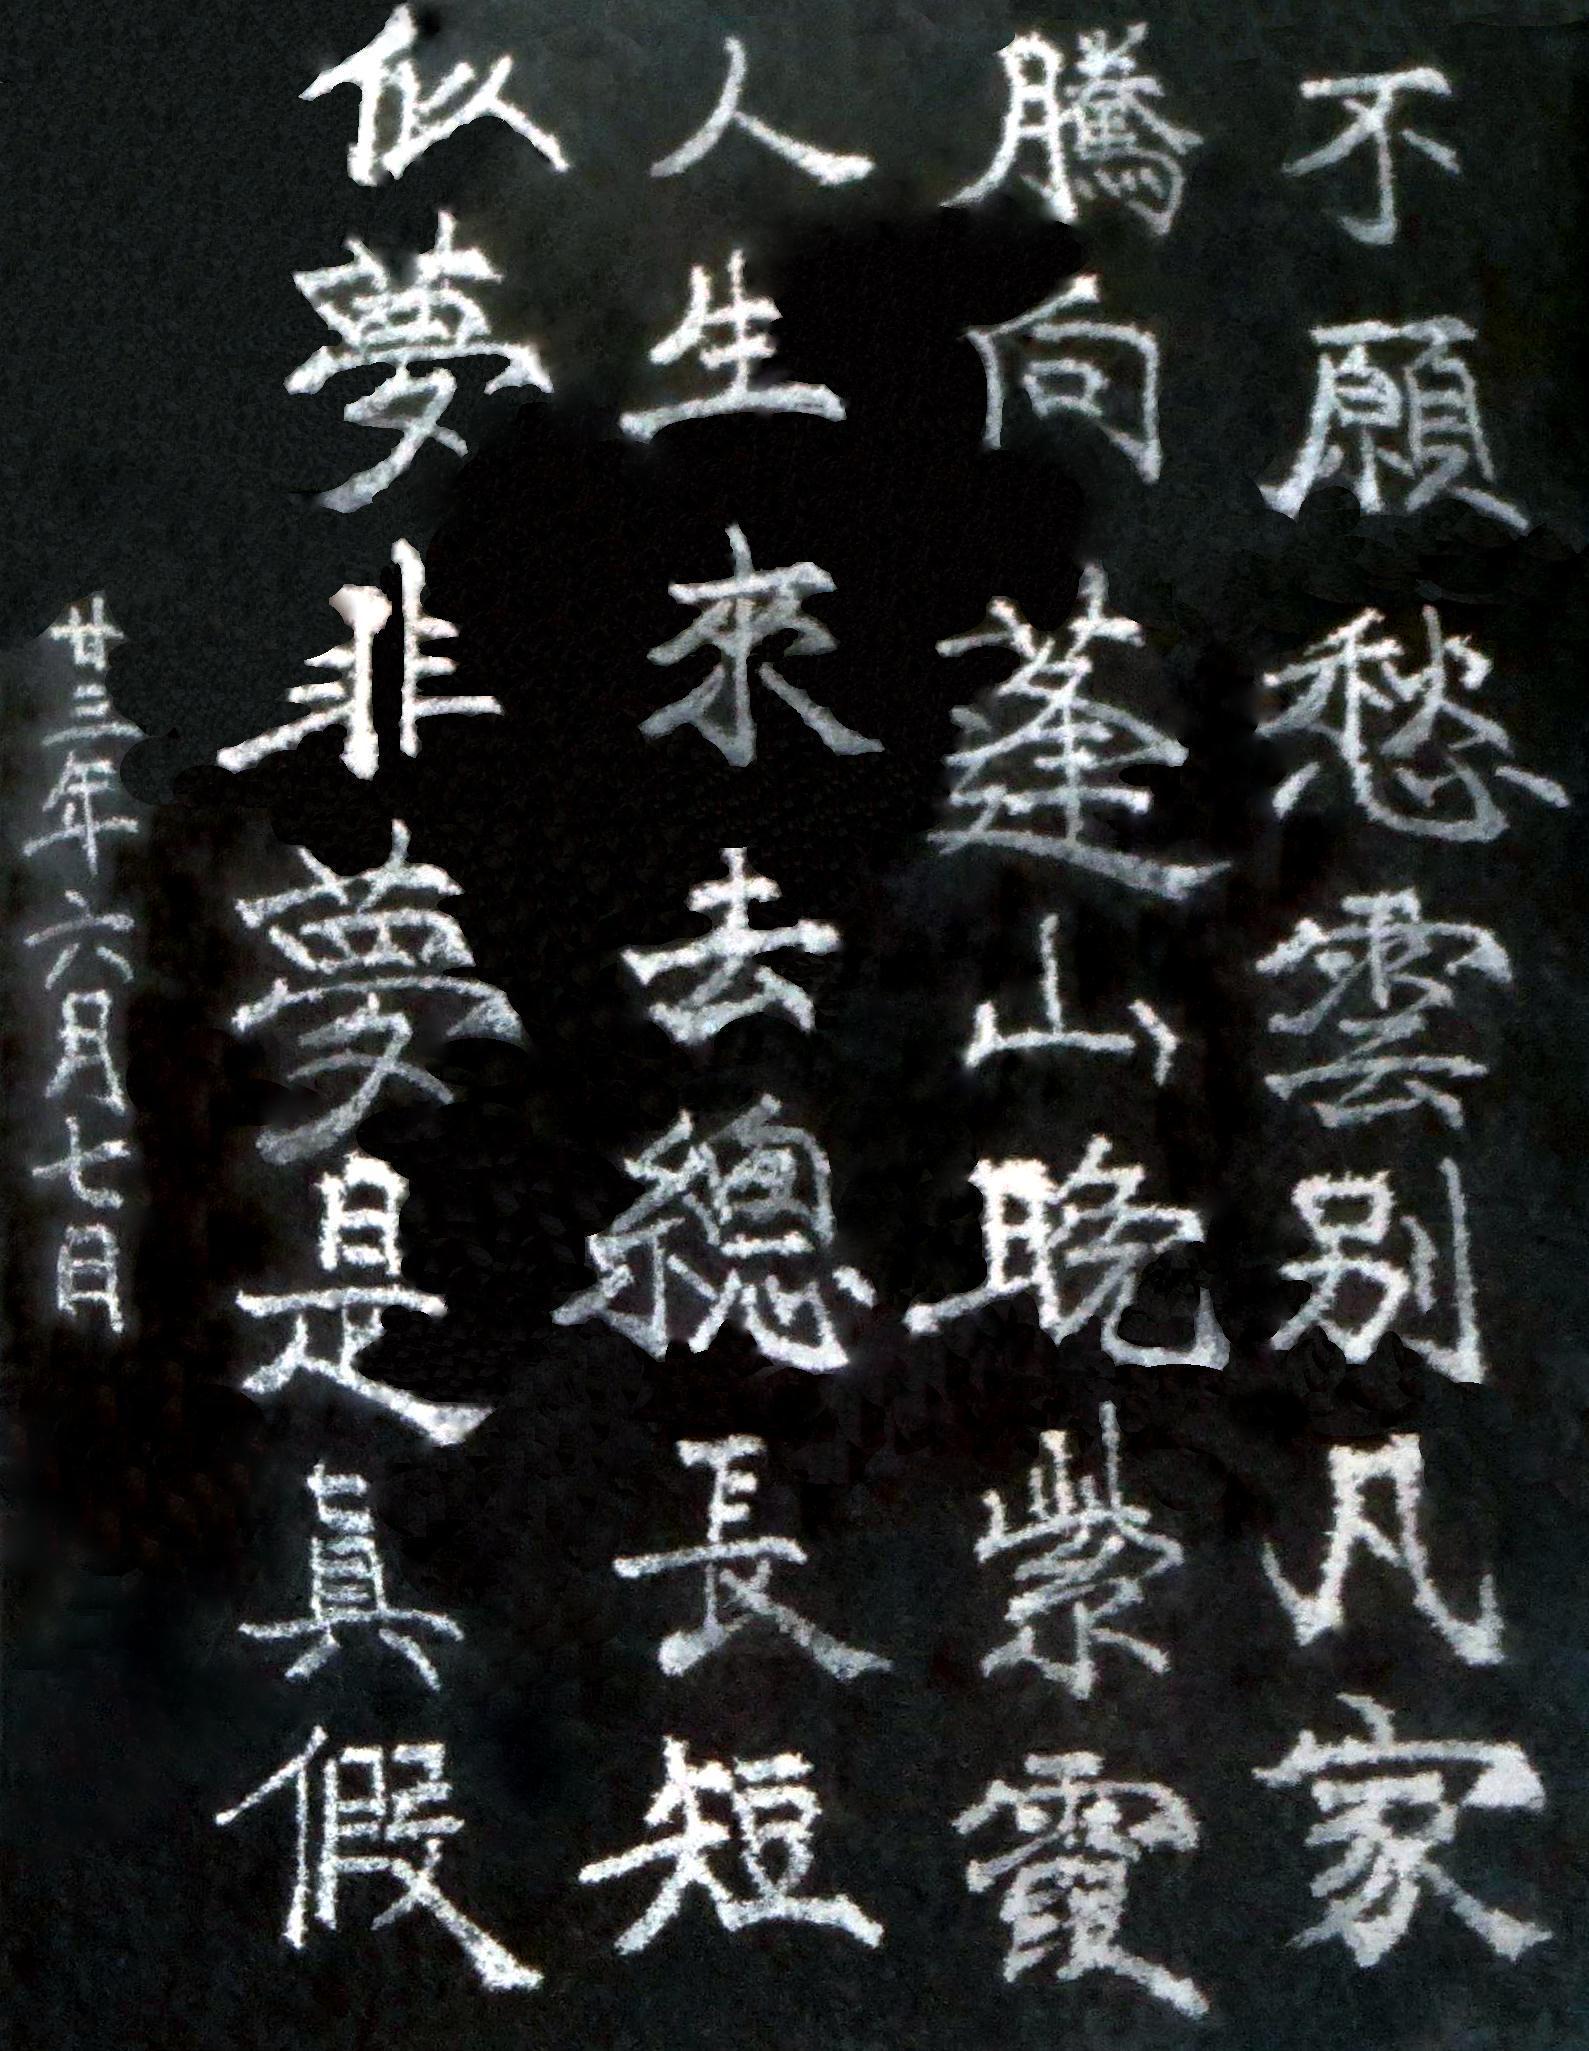 不願愁雲別凡家
騰向蓬山晚紫霞
人生來去總長短
似夢非夢是真假
廿三年六月七日